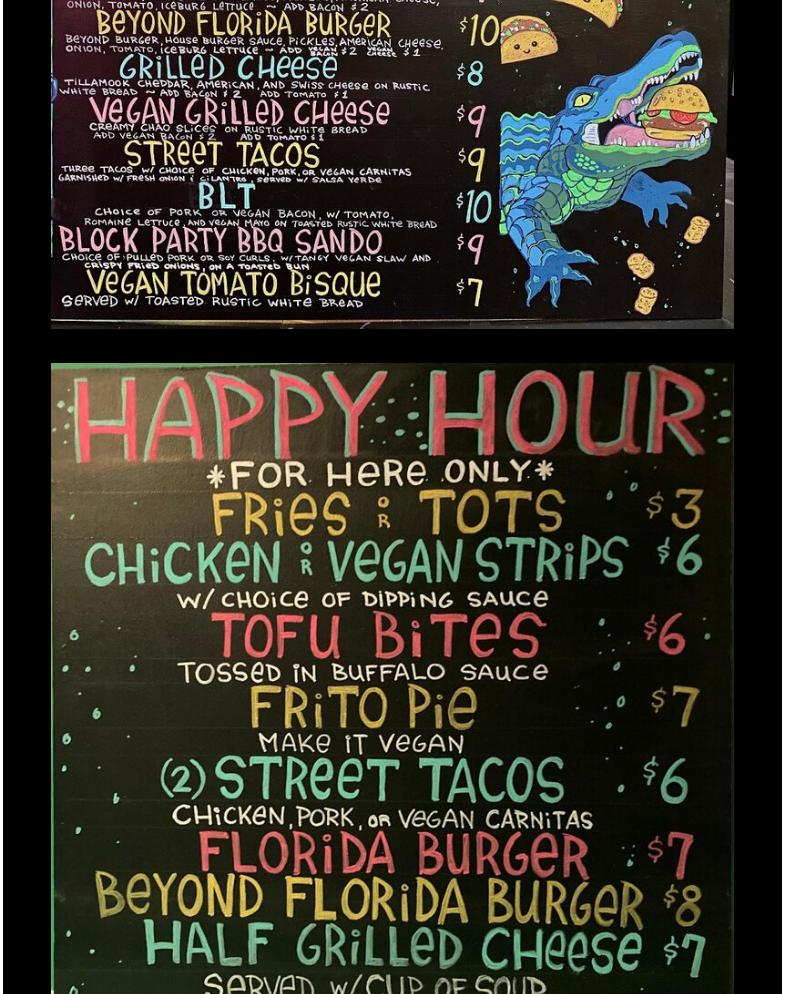 ONION, TOMATO, ICEBURG LETTUCE ~ ADD BACON $2
BEYOND FLORIDA BURGER $10
BEYOND BURGER, HOUSE BURGER SAUCE, PICKLES, AMERICAN CHEESE,
ONION, TOMATO, ICEBURG LETTUCE ~ ADD VEGAN BACON $2 VEGAN CHEESE $1
GRILLED CHEESE $8
TILLAMOOK CHEDDAR, AMERICAN, AND SWISS CHEESE ON RUSTIC
WHITE BREAD ~ ADD BACON $2 ADD TOMATO $1
VEGAN GRILLED CHEESE $9
CREAMY CHAO SLICES ON RUSTIC WHITE BREAD
ADD VEGAN BACON $2 ADD TOMATO $1
STREET TACOS $9
THREE TACOS W/ CHOICE OF CHICKEN, PORK, OR VEGAN CARNITAS
GARNISHED W/ FRESH ONION & CILANTRO, SERVED W/ SALSA VERDE
BLT $10
CHOICE OF PORK OR VEGAN BACON, W/ TOMATO,
ROMAINE LETTUCE, AND VEGAN MAYO ON TOASTED RUSTIC WHITE BREAD
BLOCK PARTY BBQ SANDO $9
CHOICE OF PULLED PORK OR SOY CURLS, W/ TANGY VEGAN SLAW AND
CRISPY FRIED ONIONS, ON A TOASTED BUN
VEGAN TOMATO BISQUE $7
SERVED W/ TOASTED RUSTIC WHITE BREAD
HAPPY HOUR
*FOR HERE ONLY*
FRIES OR TOTS $3
CHICKEN OR VEGAN STRIPS $6
W/ CHOICE OF DIPPING SAUCE
TOFU BITES $6
TOSSED IN BUFFALO SAUCE
FRITO PIE $7
MAKE IT VEGAN
(2) STREET TACOS $6
CHICKEN, PORK, OR VEGAN CARNITAS
FLORIDA BURGER $7
BEYOND FLORIDA BURGER $8
HALF GRILLED CHEESE $7
SERVED W/ CUP OF SOUP